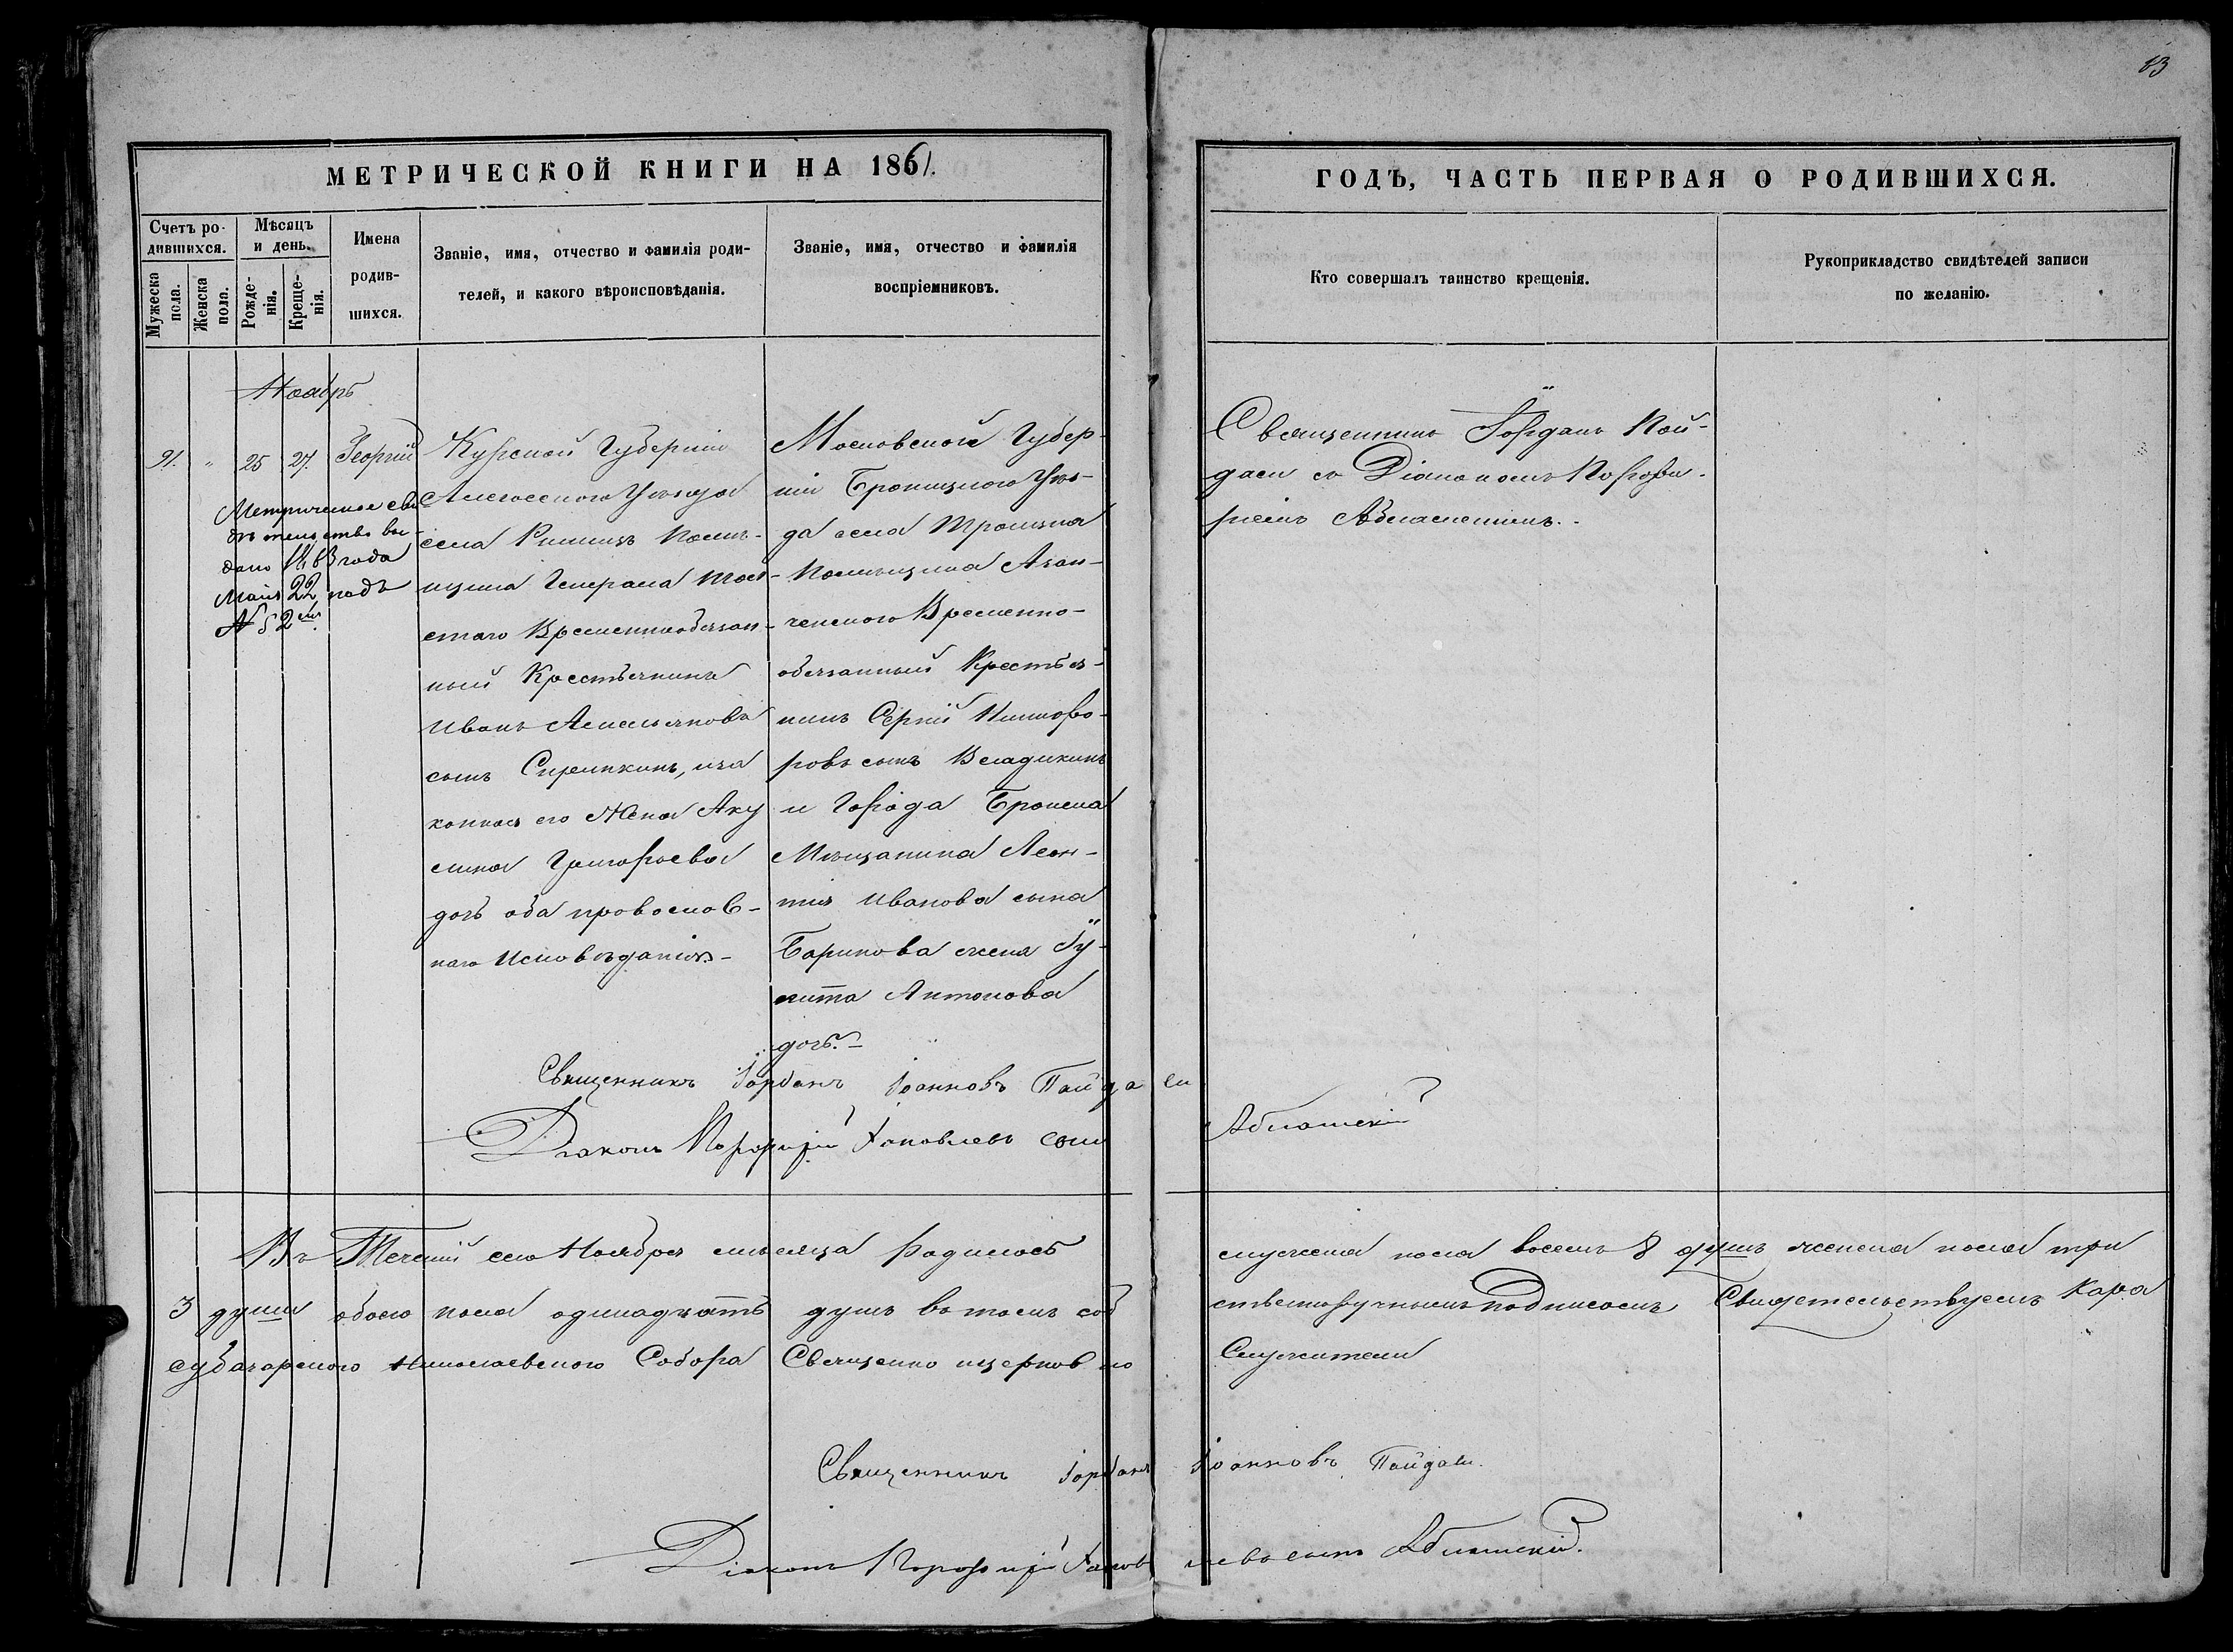 13
МЕТРИЧЕСКОЙ КНИГИ НА 1861.
ГОДЪ, ЧАСТЬ ПЕРВАЯ О РОДИВШИХСЯ.
Счетъ ро-
дившихся.
Мужеска
пола.
Женска
пола.
Мѣсяцъ
и день.
Рожде-
нія.
Креще-
нія.
Имена
родив-
шихся.
Званіе, имя, отчество и фамилія роди-
телей, и какого вѣроисповѣданія.
Званіе, имя, отчество и фамилія
воспріемниковъ.
Кто совершалъ таинство крещенія.
Рукоприкладство свидѣтелей записи
по желанію.
Ноябрь
91. " 25 27. Георгій
Метрическое сви
дѣтельство вы-
дано 1863 года
Маія 22 подъ
№ 52
Курской Губерніи
уѣзда
села Помѣ-
щика Генерала Тол-
стаго Временнообязан-
ный Крестьянинъ
Иванъ Емельяновъ
сынъ иза
конная его Жена Аку
лина Григорьева
дочь оба провослов-
наго Исповѣданія-
Московской Губер-
ніи Броницкого Уѣз-
да села Троицка
Помѣщика
Временно-
обязанный Крестья-
нинъ Сергій Никифо-
ровъ сынъ Владикинъ
и Города
Мѣщанина Леон-
тія Иванова сына
Баринова жена Іу-
лита Антонова
дочь.-
Священникъ Іорданъ Пай-
даси съ Діакономъ Порфи-
ріемъ
Священникъ Іорданъ Іоанновъ Пайдаси
Діаконъ Порфирій Яковлевъ сынъ
Въ Теченіи сего Ноября мѣсяца родилось мужеска пола восемь 8 душъ женска пола три
3 души обоего пола одинадцать душъ вотомъ соб ственноручнымъ подписомъ Свидетельствуемъ Кара
субазарского Николаевского Собора Священно ицерковно Служители
Священникъ Іорданъ Іоанновъ Пайдаси.
Діаконъ Порфирій Яковлевъ сынъ